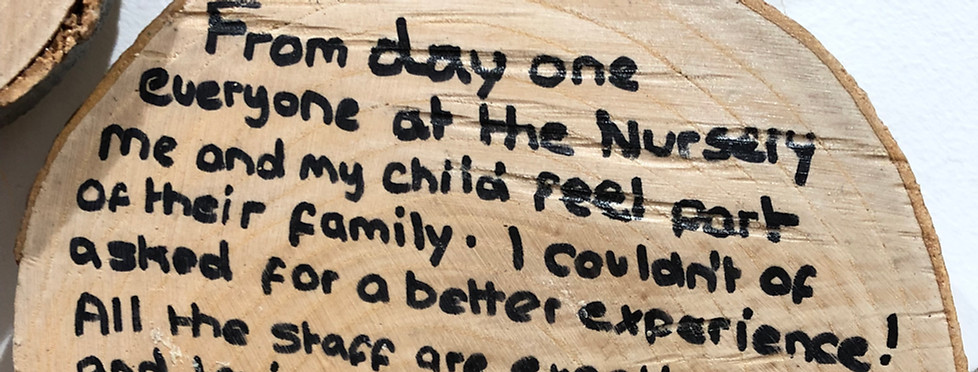 From day one
everyone at the Nursery
me and my child feel part
of their family. I couldn't of
asked for a better experience!
All the staff are
and